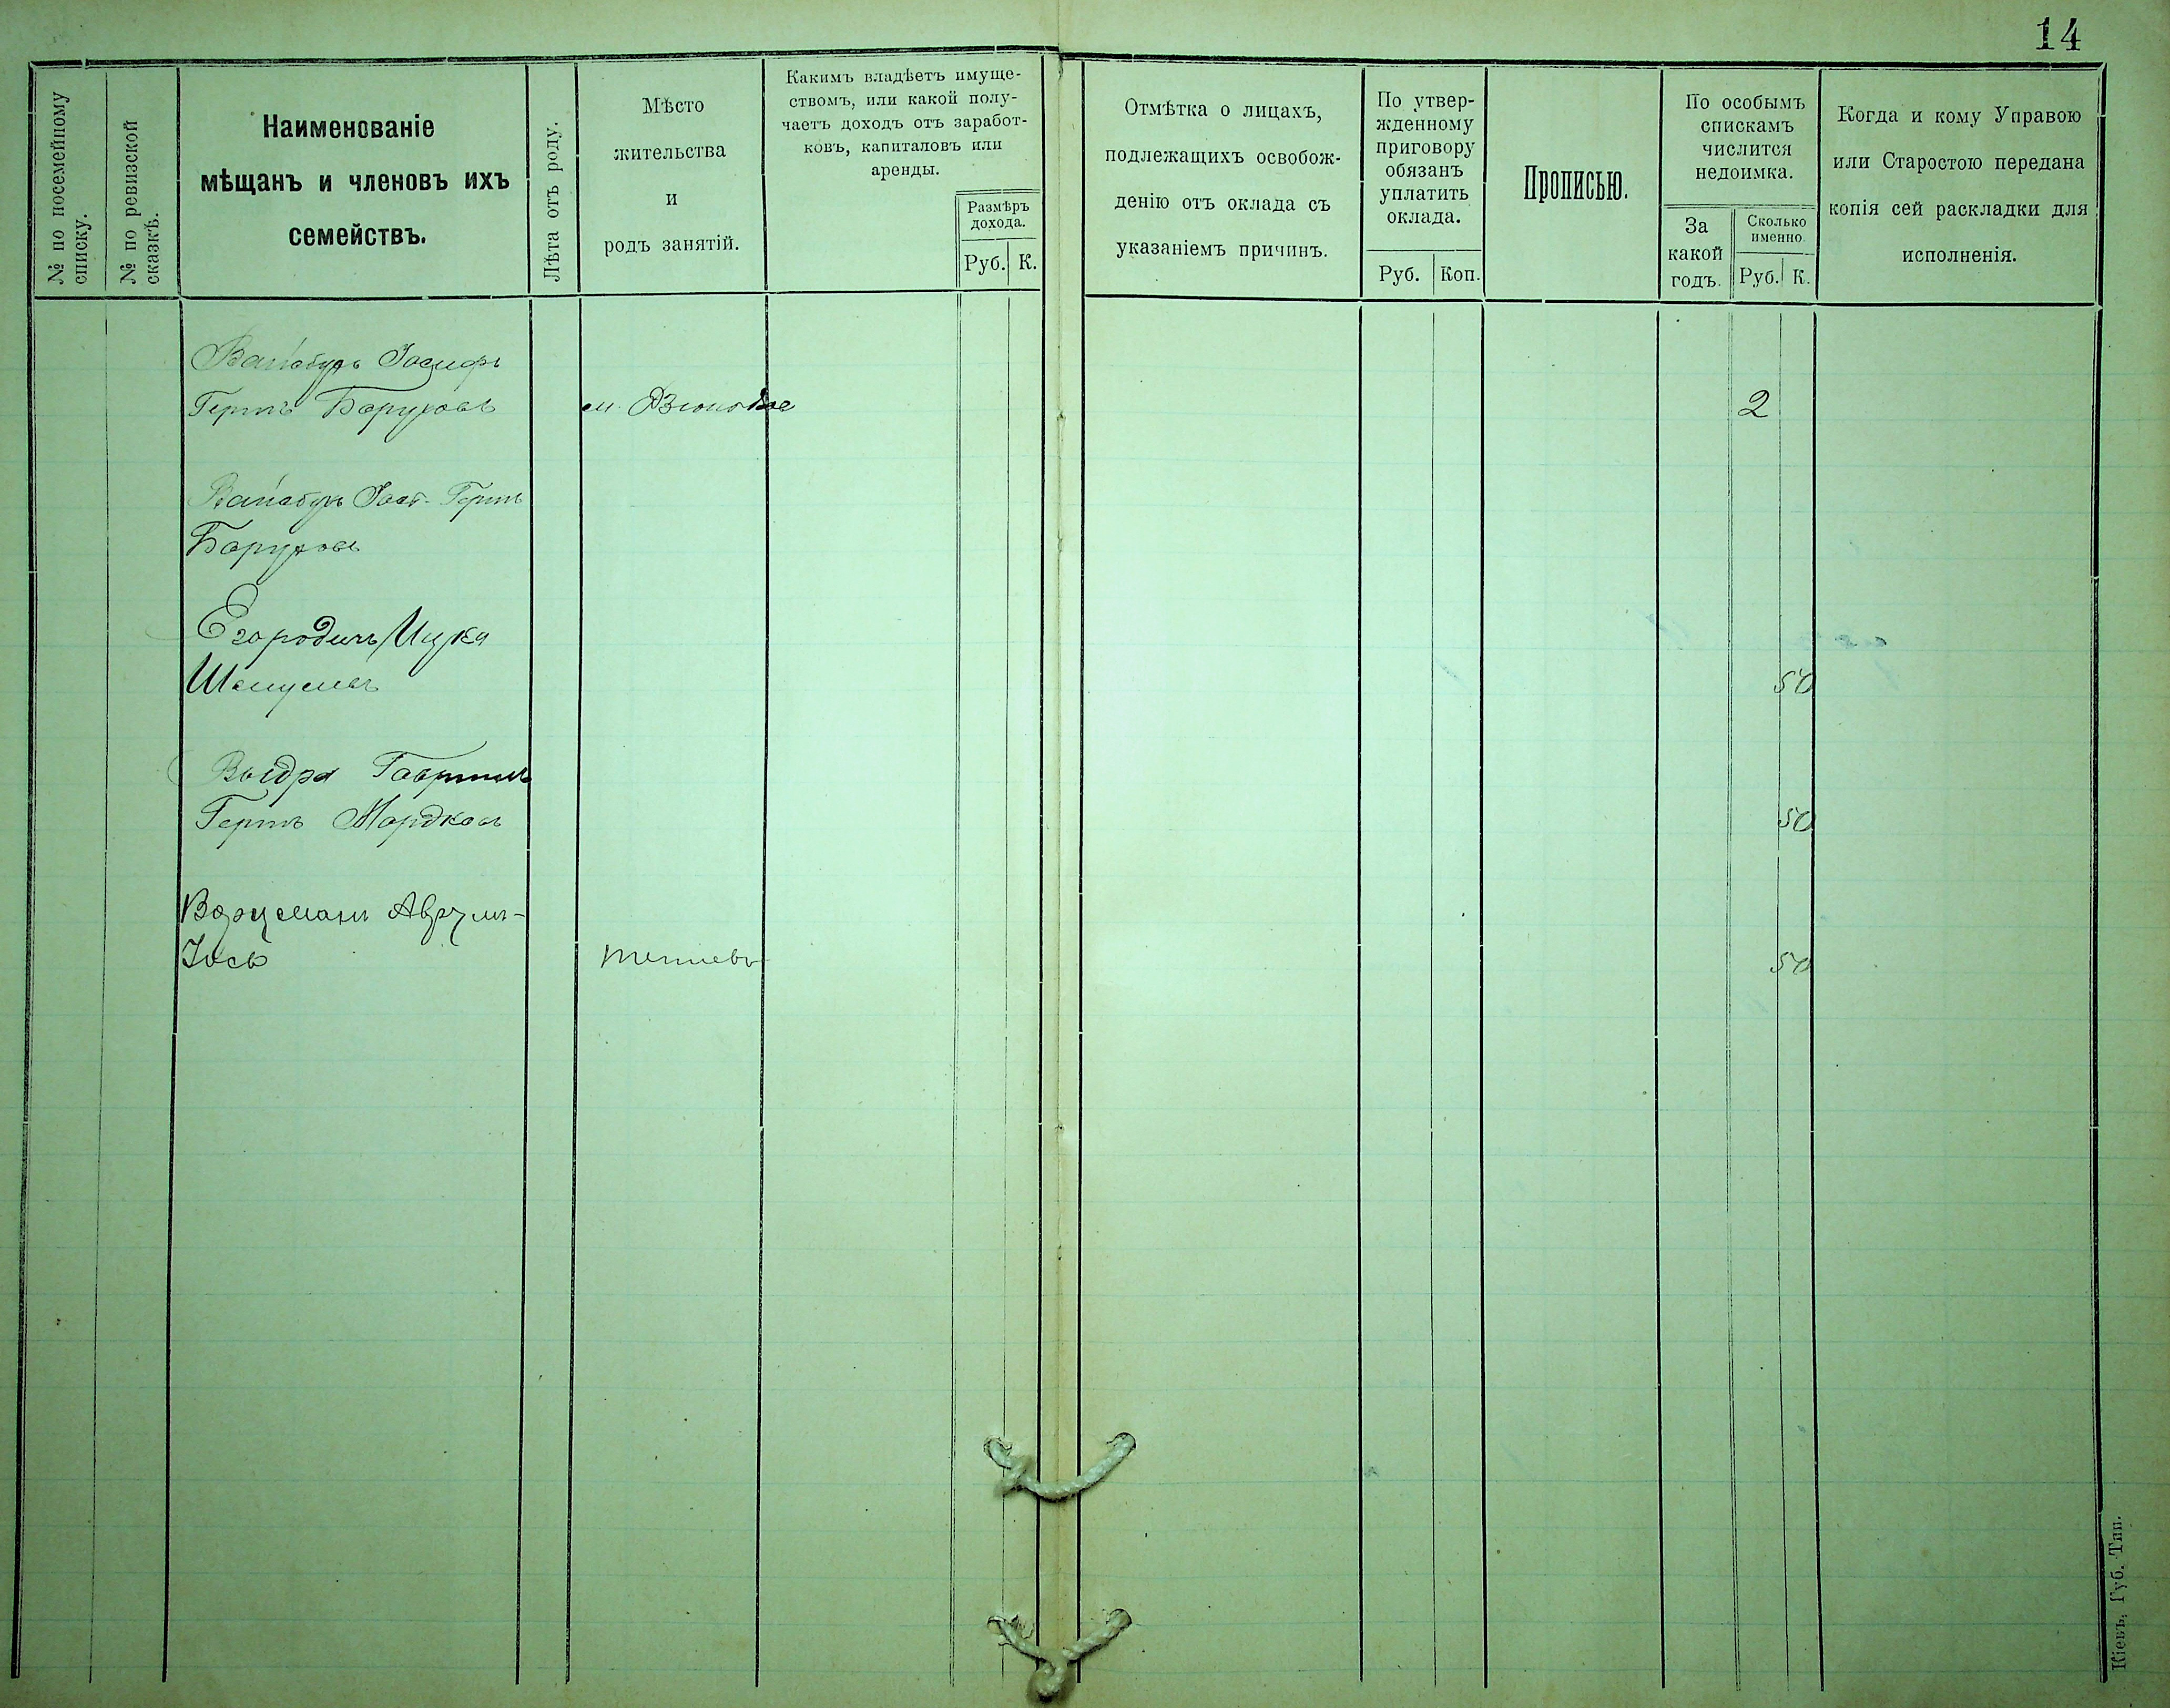 14
№ по посемейному
списку.
№ по ревизской
сказкѣ.
Наименованіе
мѣщанъ и членовъ ихъ
семействъ.
Лѣта отъ роду.
Мѣсто
жительства
и
родъ занятій.
Какимъ владѣетъ имуще-
ствомъ, или какой полу-
чаетъ доходъ отъ заработ-
ковъ, капиталовъ или
аренды.
Размѣръ
дохода.
Руб. К.
Отмѣтка о лицахъ,
подлежащихъ освобож-
денію отъ оклада съ
указаніемъ причинъ.
По утвер-
жденному
приговору
обязанъ
уплатить
оклада.
Руб. Коп.
Прописью.
По особымъ
спискамъ
числится
недоимка.
За
какой
годъ.
Сколько
именно
Руб. К.
Когда и кому Управою
или Старостою передана
копія сей раскладки для
исполненія.
Іосифъ
Гершъ Боруховъ м. 2
Гершъ
Боруховъ
Ицка
Шмулевъ 50
Выдра Гавриилъ
Гершъ Мордковъ 50
Ворцманъ Аврумъ-
Іось 50
Кіевъ, Губ. Тип.